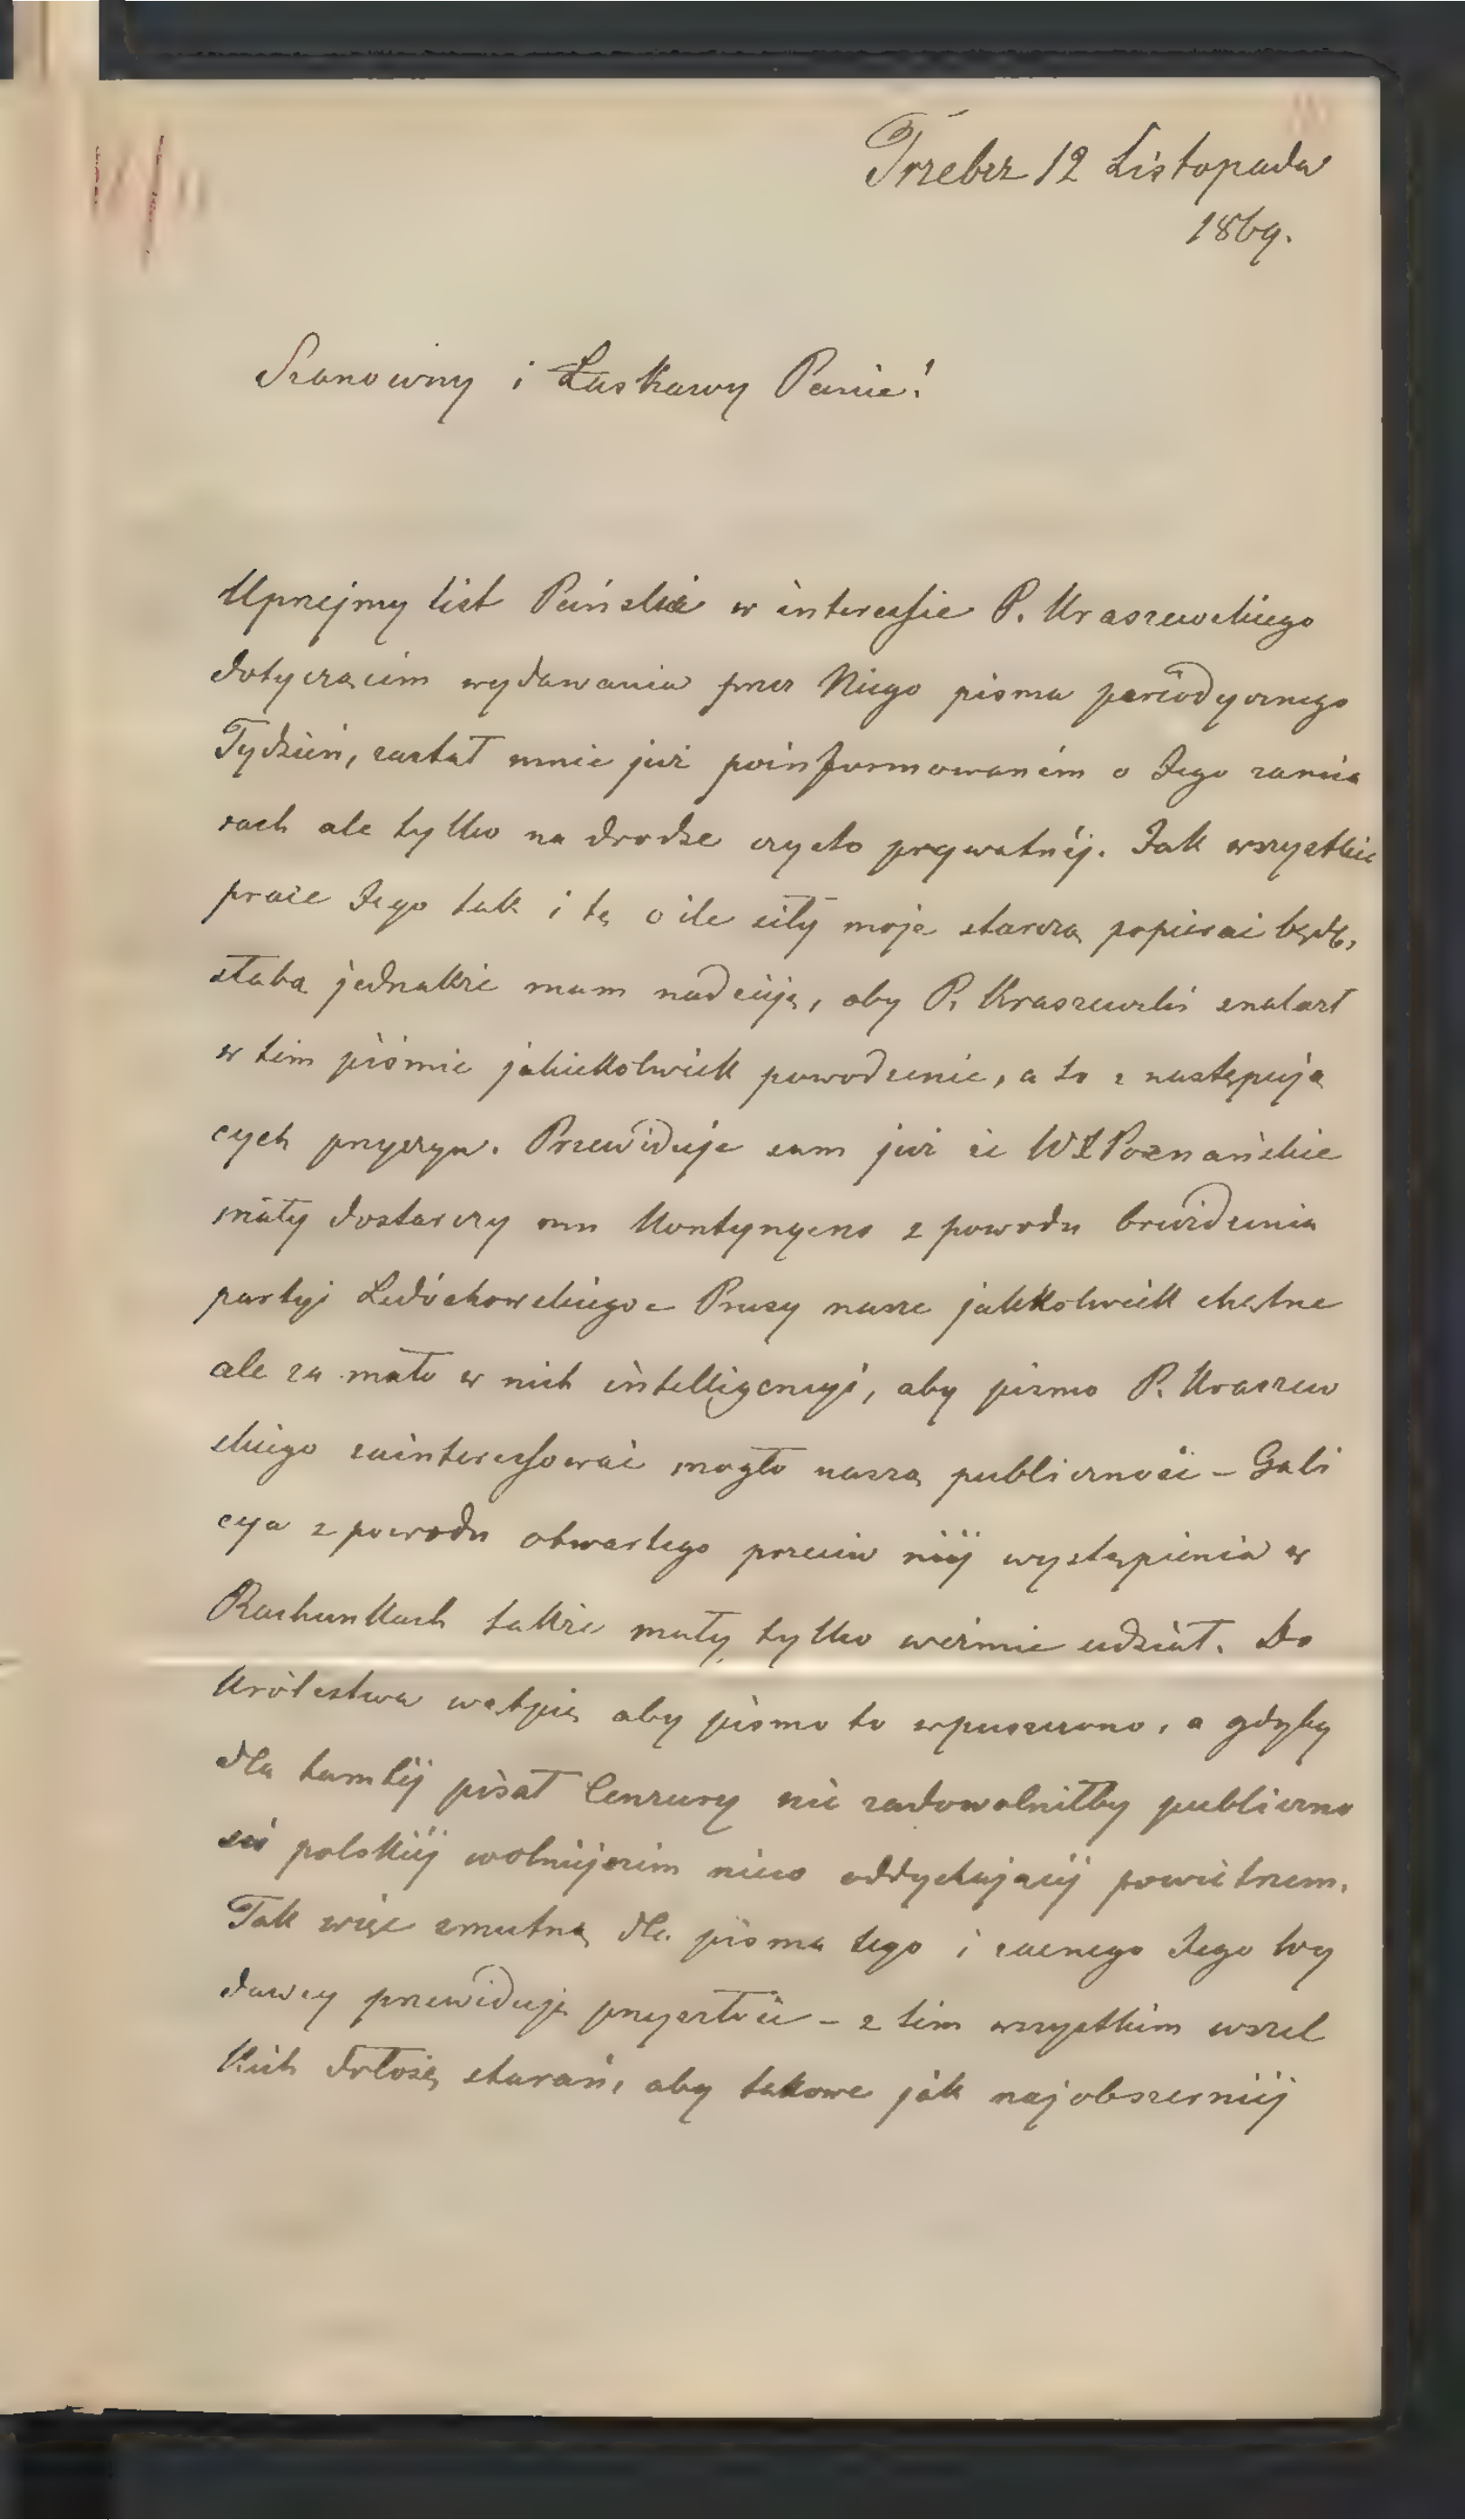 Trzebcz 12 Listopada
1869.
Szanowny i Łaskawy Panie!
Uprzejmy list Pański w interessie P. Kraszewskiego
dotyczącém wydawania przez Niego pisma peryodycznego
Tydzień, zastał mnie już poinformowaném o Jego zamia
rach ale tylko na drodze czysto prywatnéj. Jak wszystkie
prace Jego tak i tę o ile siły moje starczą popierać będę,
słabą jednakże mam nadzieję, aby P. Kraszewski znalazł
w tém piśmie jakiekolwiek powodzenie, a to z następują
cych przyczyn. Przewiduje sam już że WX Poznańskie
mały dostarczy mu Kontyngens z powodu bruździenia
partyi Ledóchowskiego – Prusy nasze jakkolwiek chętne
ale za mało w nich intelligencyi, aby pismo P. Kraszew
skiego zainteressować mogło naszą publiczność – Gali
cya z powodu otwartego przeciw niéj wystąpienia w
Rachunkach także mały tylko weźmie udział. Do
Królestwa wątpię aby pismo to wpuszczono, a gdyby
dla tamtéj pisał Cenzury nie zadowolniłby publiczno
ści polskiéj wolniejszém nieco oddychającéj powietrzem.
Tak więc smutną dla pisma tego i zacnego Jego Wy
dawcy przewiduję przyszłość – z tém wszystkiém wszel
kich dołożę starań, aby takowe jak najobszerniéj